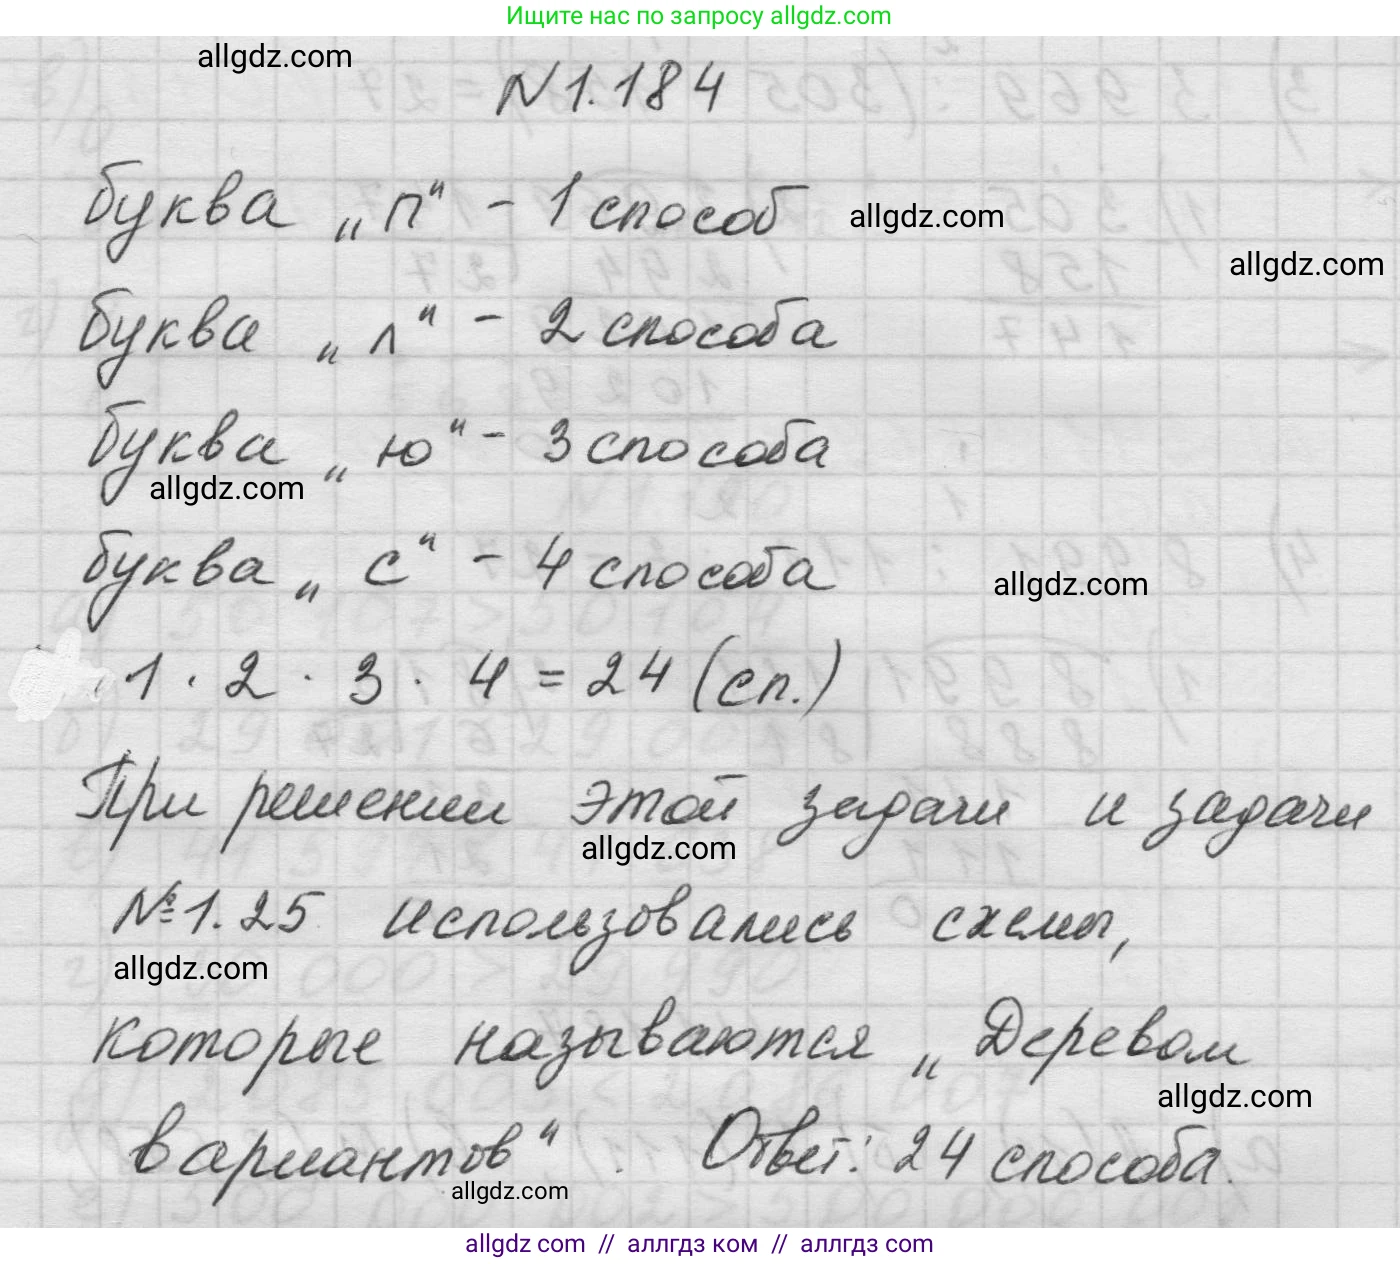 Ищите нас по запросу allgdz.com
allgdz.com
N1.184
буква „п“ - 1 способ
allgdz.com
allgdz.com
буква „л“ - 2 способа
буква „ю“ - 3 способа
allgdz.com
буква „с“ - 4 способа
allgdz.com
1 · 2 · 3 · 4 = 24 (сп.)
При решении этой задачи и задачи
allgdz.com
№1.25 использовались схемы,
allgdz.com
которые называются „Деревом
allgdz.com
вариантов“. Ответ: 24 способа.
allgdz.com
allgdz com // аллгдз ком // аллгдз com